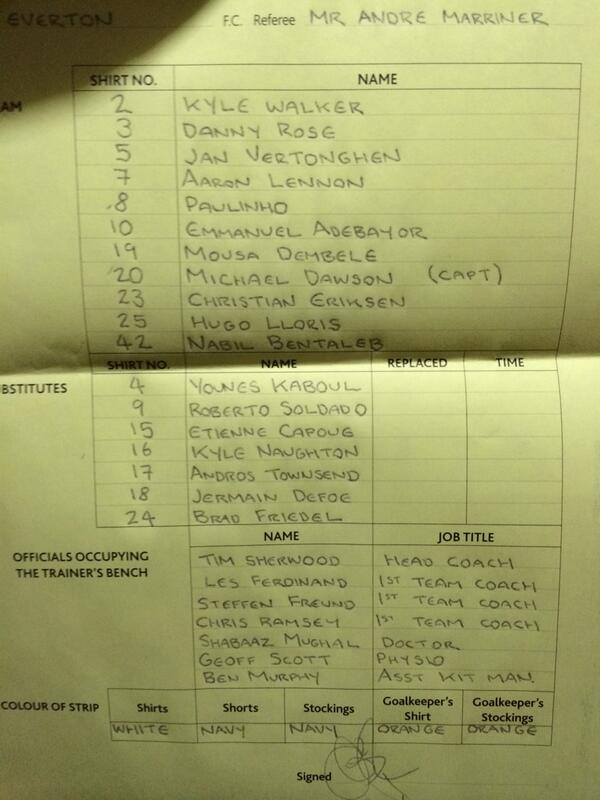 EVERTON F.C. Referee MR ANDRE MARRINER
SHIRT NO. NAME
AM
2 KYLE WALKER
3 DANNY ROSE
5 JAN VERTONGHEN
7 AARON LENNON
8 PAULINHO
10 EMMANUEL ADEBAYOR
19 MOUSA DEMBELE
20 MICHAEL DAWSON (CAPT)
23 CHRISTIAN ERIKSEN
25 HUGO LLORIS
42 NABIL BENTALEB
SHIRT NO. NAME REPLACED TIME
BSTITUTES
4 YOUNES KABOUL
9 ROBERTO SOLDADO
15 ETIENNE CAPOUE
16 KYLE NAUGHTON
17 ANDROS TOWNSEND
18 JERMAIN DEFOE
24 BRAD FRIEDEL
NAME JOB TITLE
OFFICIALS OCCUPYING
THE TRAINER'S BENCH
TIM SHERWOOD HEAD COACH
LES FERDINAND 1ST TEAM COACH
STEFFEN FREUND 1ST TEAM COACH
CHRIS RAMSEY 1ST TEAM COACH
SHABAAZ MUGHAL DOCTOR
GEOFF SCOTT PHYSIO
BEN MURPHY ASST KIT MAN.
COLOUR OF STRIP Shirts Shorts Stockings Goalkeeper's Shirt Goalkeeper's Stockings
WHITE NAVY NAVY ORANGE ORANGE
Signed